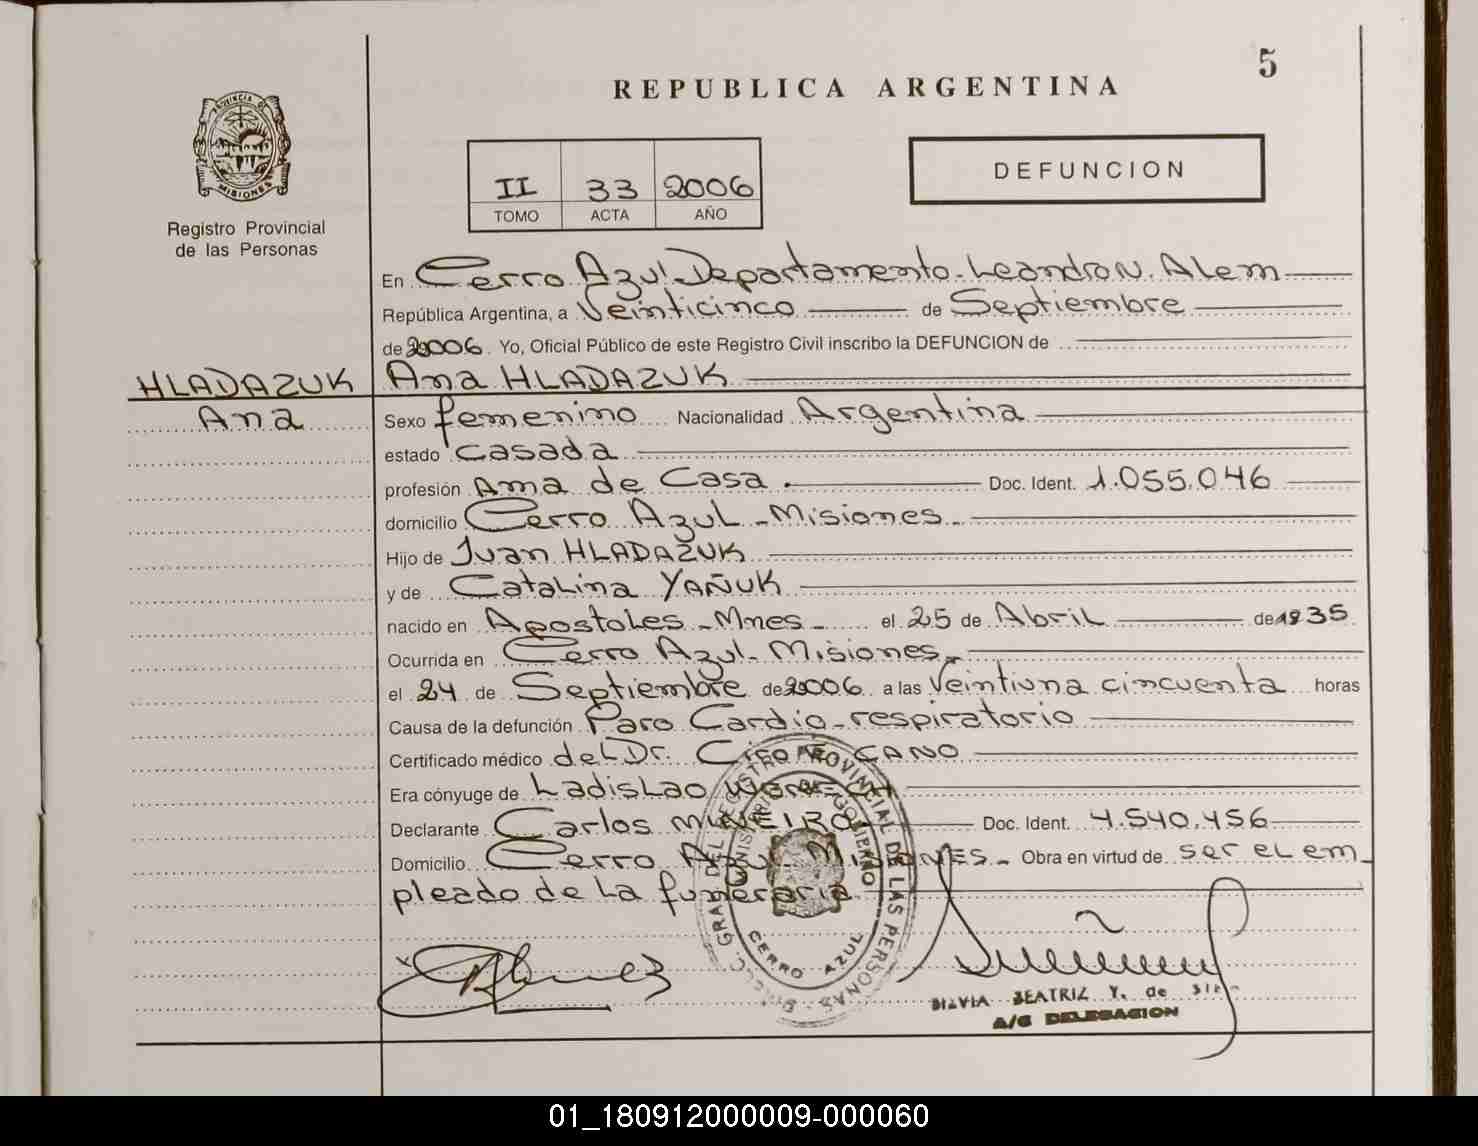 5
REPUBLICA ARGENTINA
PROVINCIA DE
MISIONES
Registro Provincial
de las Personas
II 33 2006
TOMO ACTA AÑO
DEFUNCION
En Cerro Azul Departamento - Leandro N. Alem
República Argentina, a Veinticinco de Septiembre
de 2006. Yo, Oficial Público de este Registro Civil inscribo la DEFUNCION de
HLADAZUK
Ana
Ana HLADAZUK
Sexo femenino Nacionalidad Argentina
estado casada
profesión Ama de Casa. Doc. Ident. 1.055.046
domicilio Cerro Azul - Misiones -
Hijo de Juan HLADAZUK
y de Catalina YAÑUK
nacido en Apostoles - Mnes - el 25 de Abril de 1935
Ocurrida en Cerro Azul - Misiones -
el 24 de Septiembre de 2006 a las Veintiuna cincuenta horas
Causa de la defunción Paro Cardio-respiratorio
Certificado médico del Dr. CANO
Era cónyuge de Ladislao
Declarante Carlos Doc. Ident. 4.540.456
Domicilio Cerro Azul MISIONES - Obra en virtud de ser el em-
pleado de la funeraria
REGISTRO PROVINCIAL DE LAS PERSONAS
MINISTERIO DE GOBIERNO
CERRO AZUL
BEATRIZ Y. de
A/C DELEGACION
01_180912000009-000060